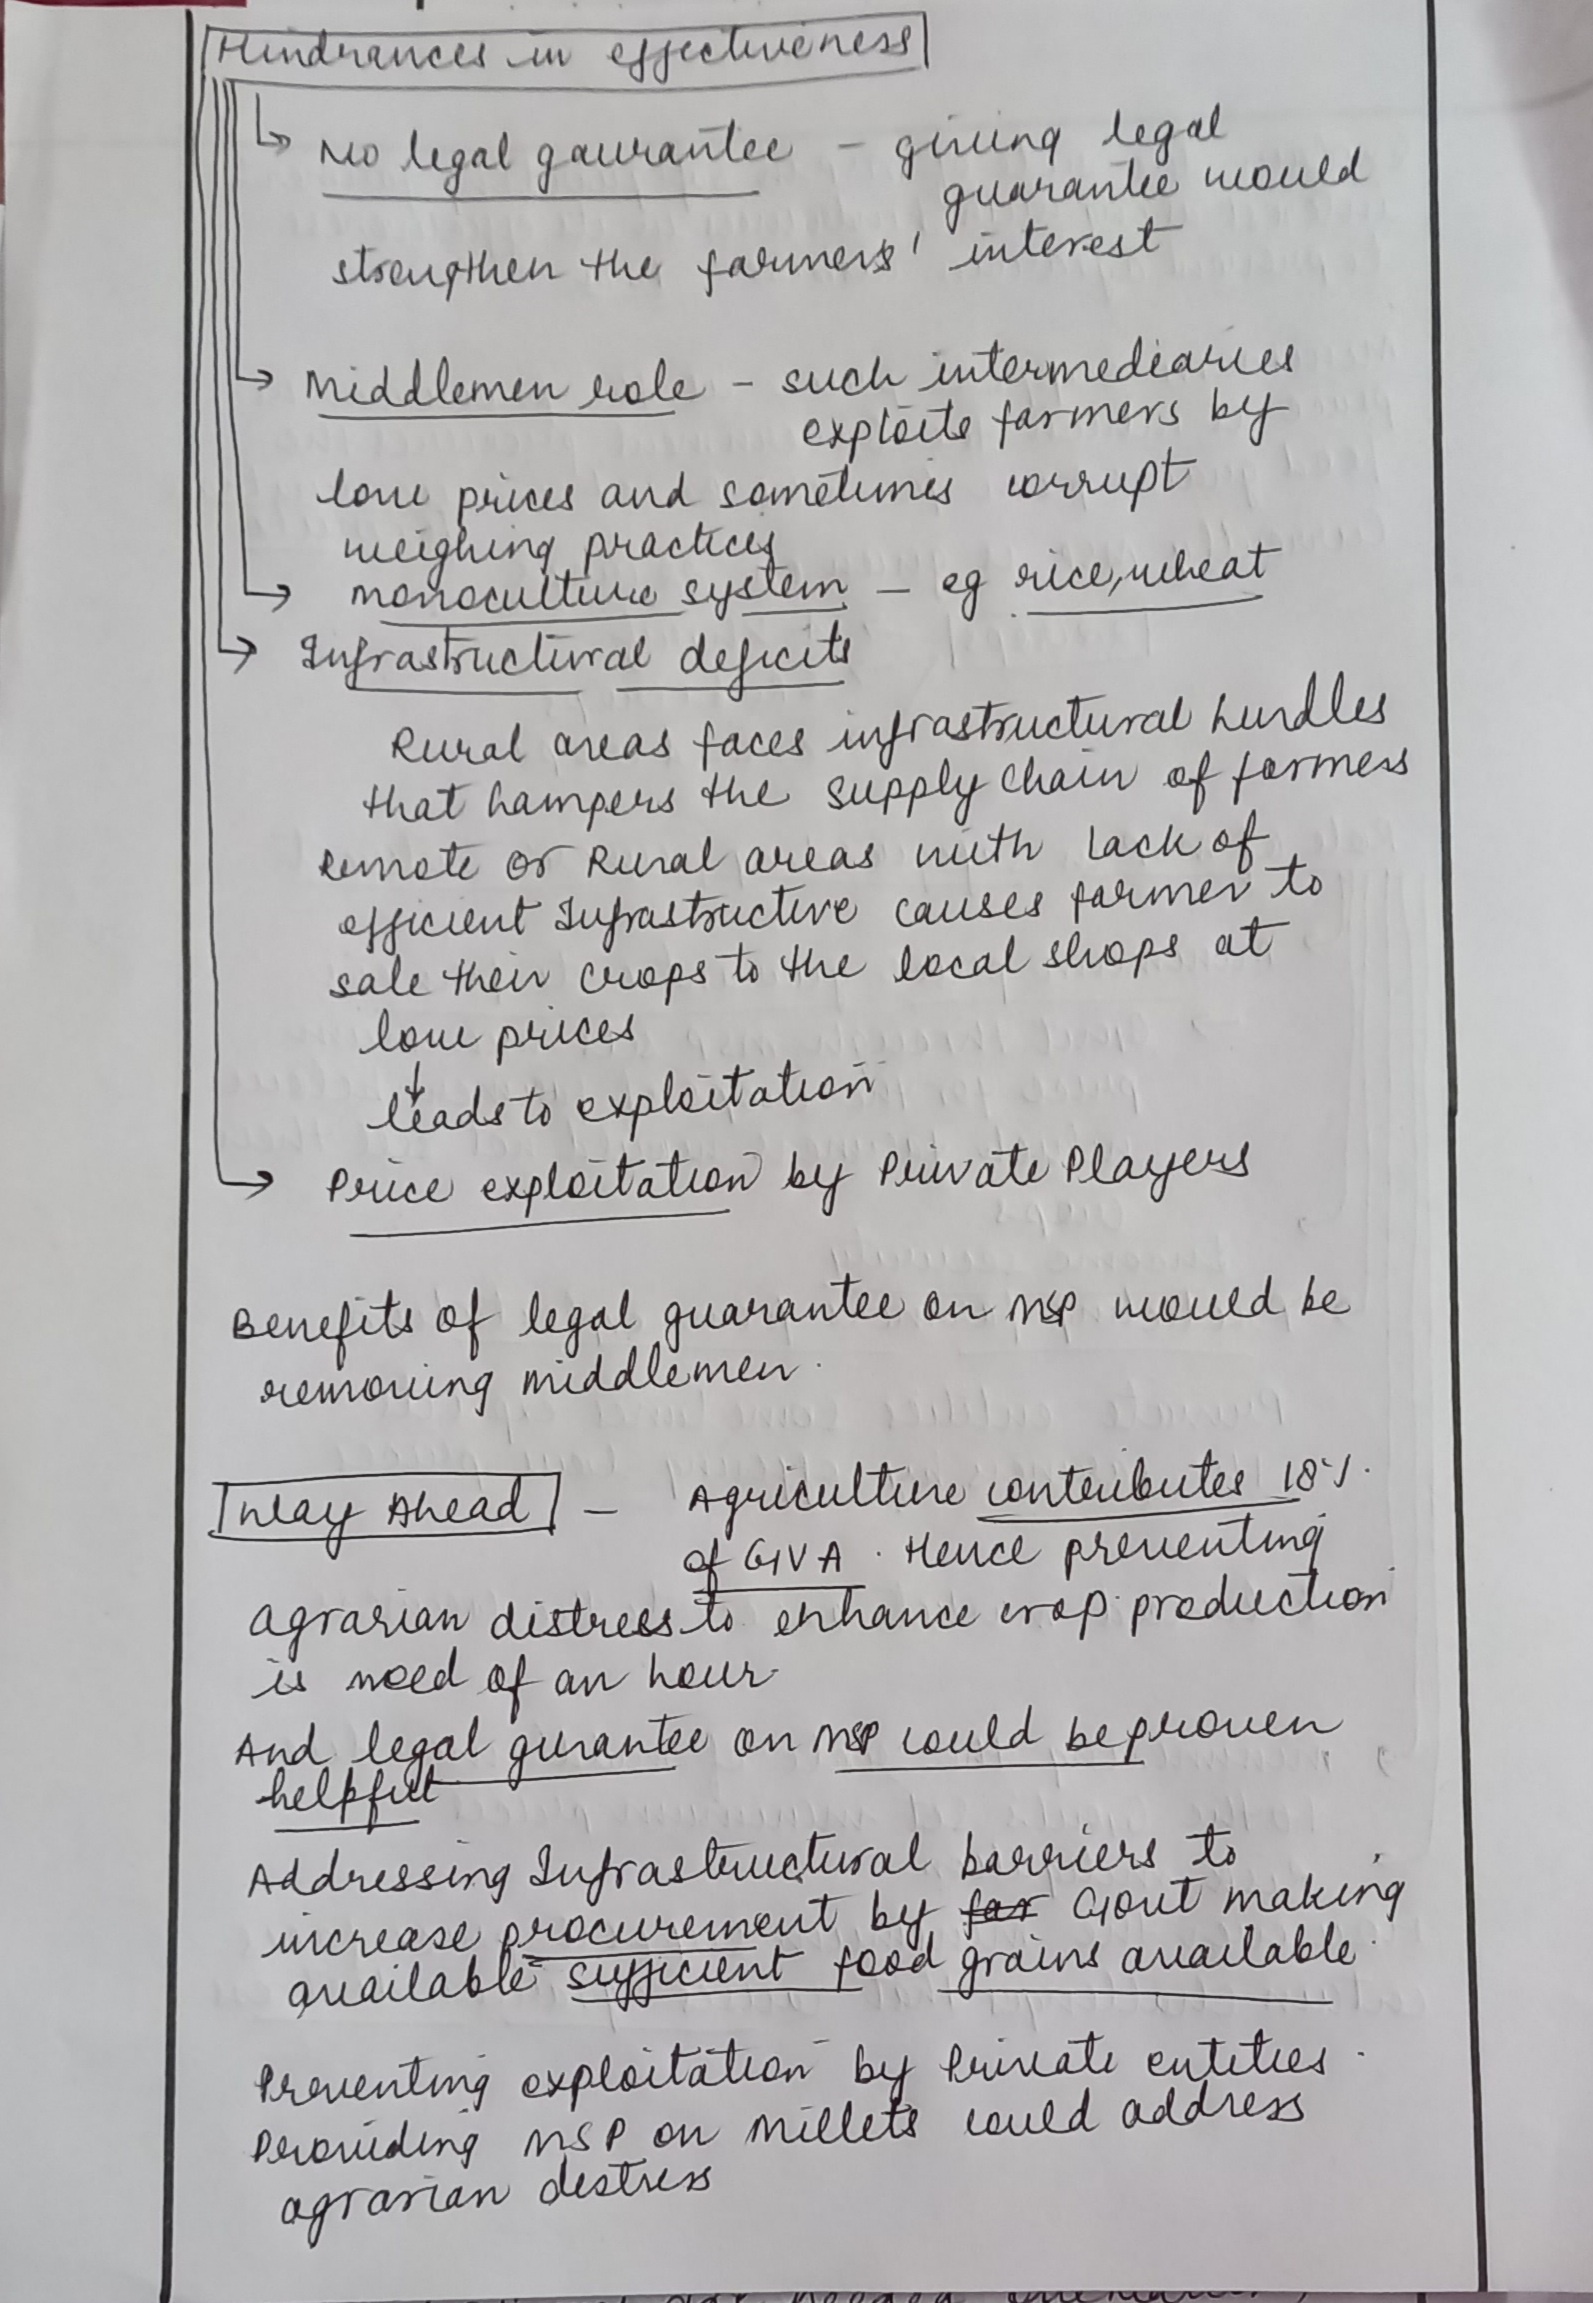 Hindrances in effectiveness
No legal gaurantee - giving legal
guarantee would
strengthen the farmers' interest
Middlemen role - such intermediaries
exploits farmers by
low prices and sometimes corrupt
weighing practices
monoculture system - eg rice, wheat
Infrastructural deficits
Rural areas faces infrastructural hurdles
that hampers the supply chain of farmers
Remote or Rural areas with lack of
efficient Infrastructure causes farmer to
sale their crops to the local shops at
low prices
leads to exploitation
Price exploitation by Private Players
Benefits of legal guarantee on MSP would be
removing middlemen.
Way Ahead - Agriculture contributes 18%
of GVA. Hence preventing
agrarian distress to enhance crop production
is need of an hour.
And legal gurantee on MSP could be proven
helpful
Addressing Infrastructural barriers to
increase procurement by far Govt making
available sufficient food grains available.
Preventing exploitation by Private entities.
Providing MSP on Millets could address
agrarian distress